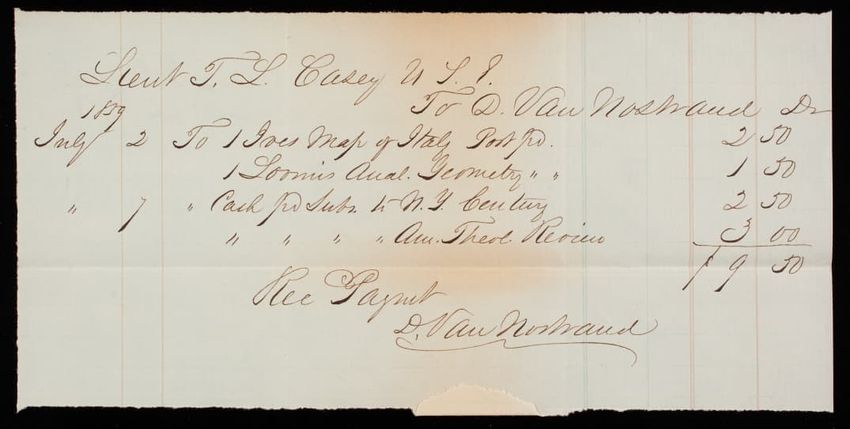 Lieut T. L. Casey U S E.
To D. Van Nostrand Dr
1859
July 2 To 1 Ives Map of Italy Post pd. 2 50
1 Loomis Anal. Geometry " " 1 50
" 7 " Cash pd Subs. to N. Y. Century 2 50
" " " " Am. Theol. Review 3 00
$ 9 50
Rec Paymt
D. Van Nostrand